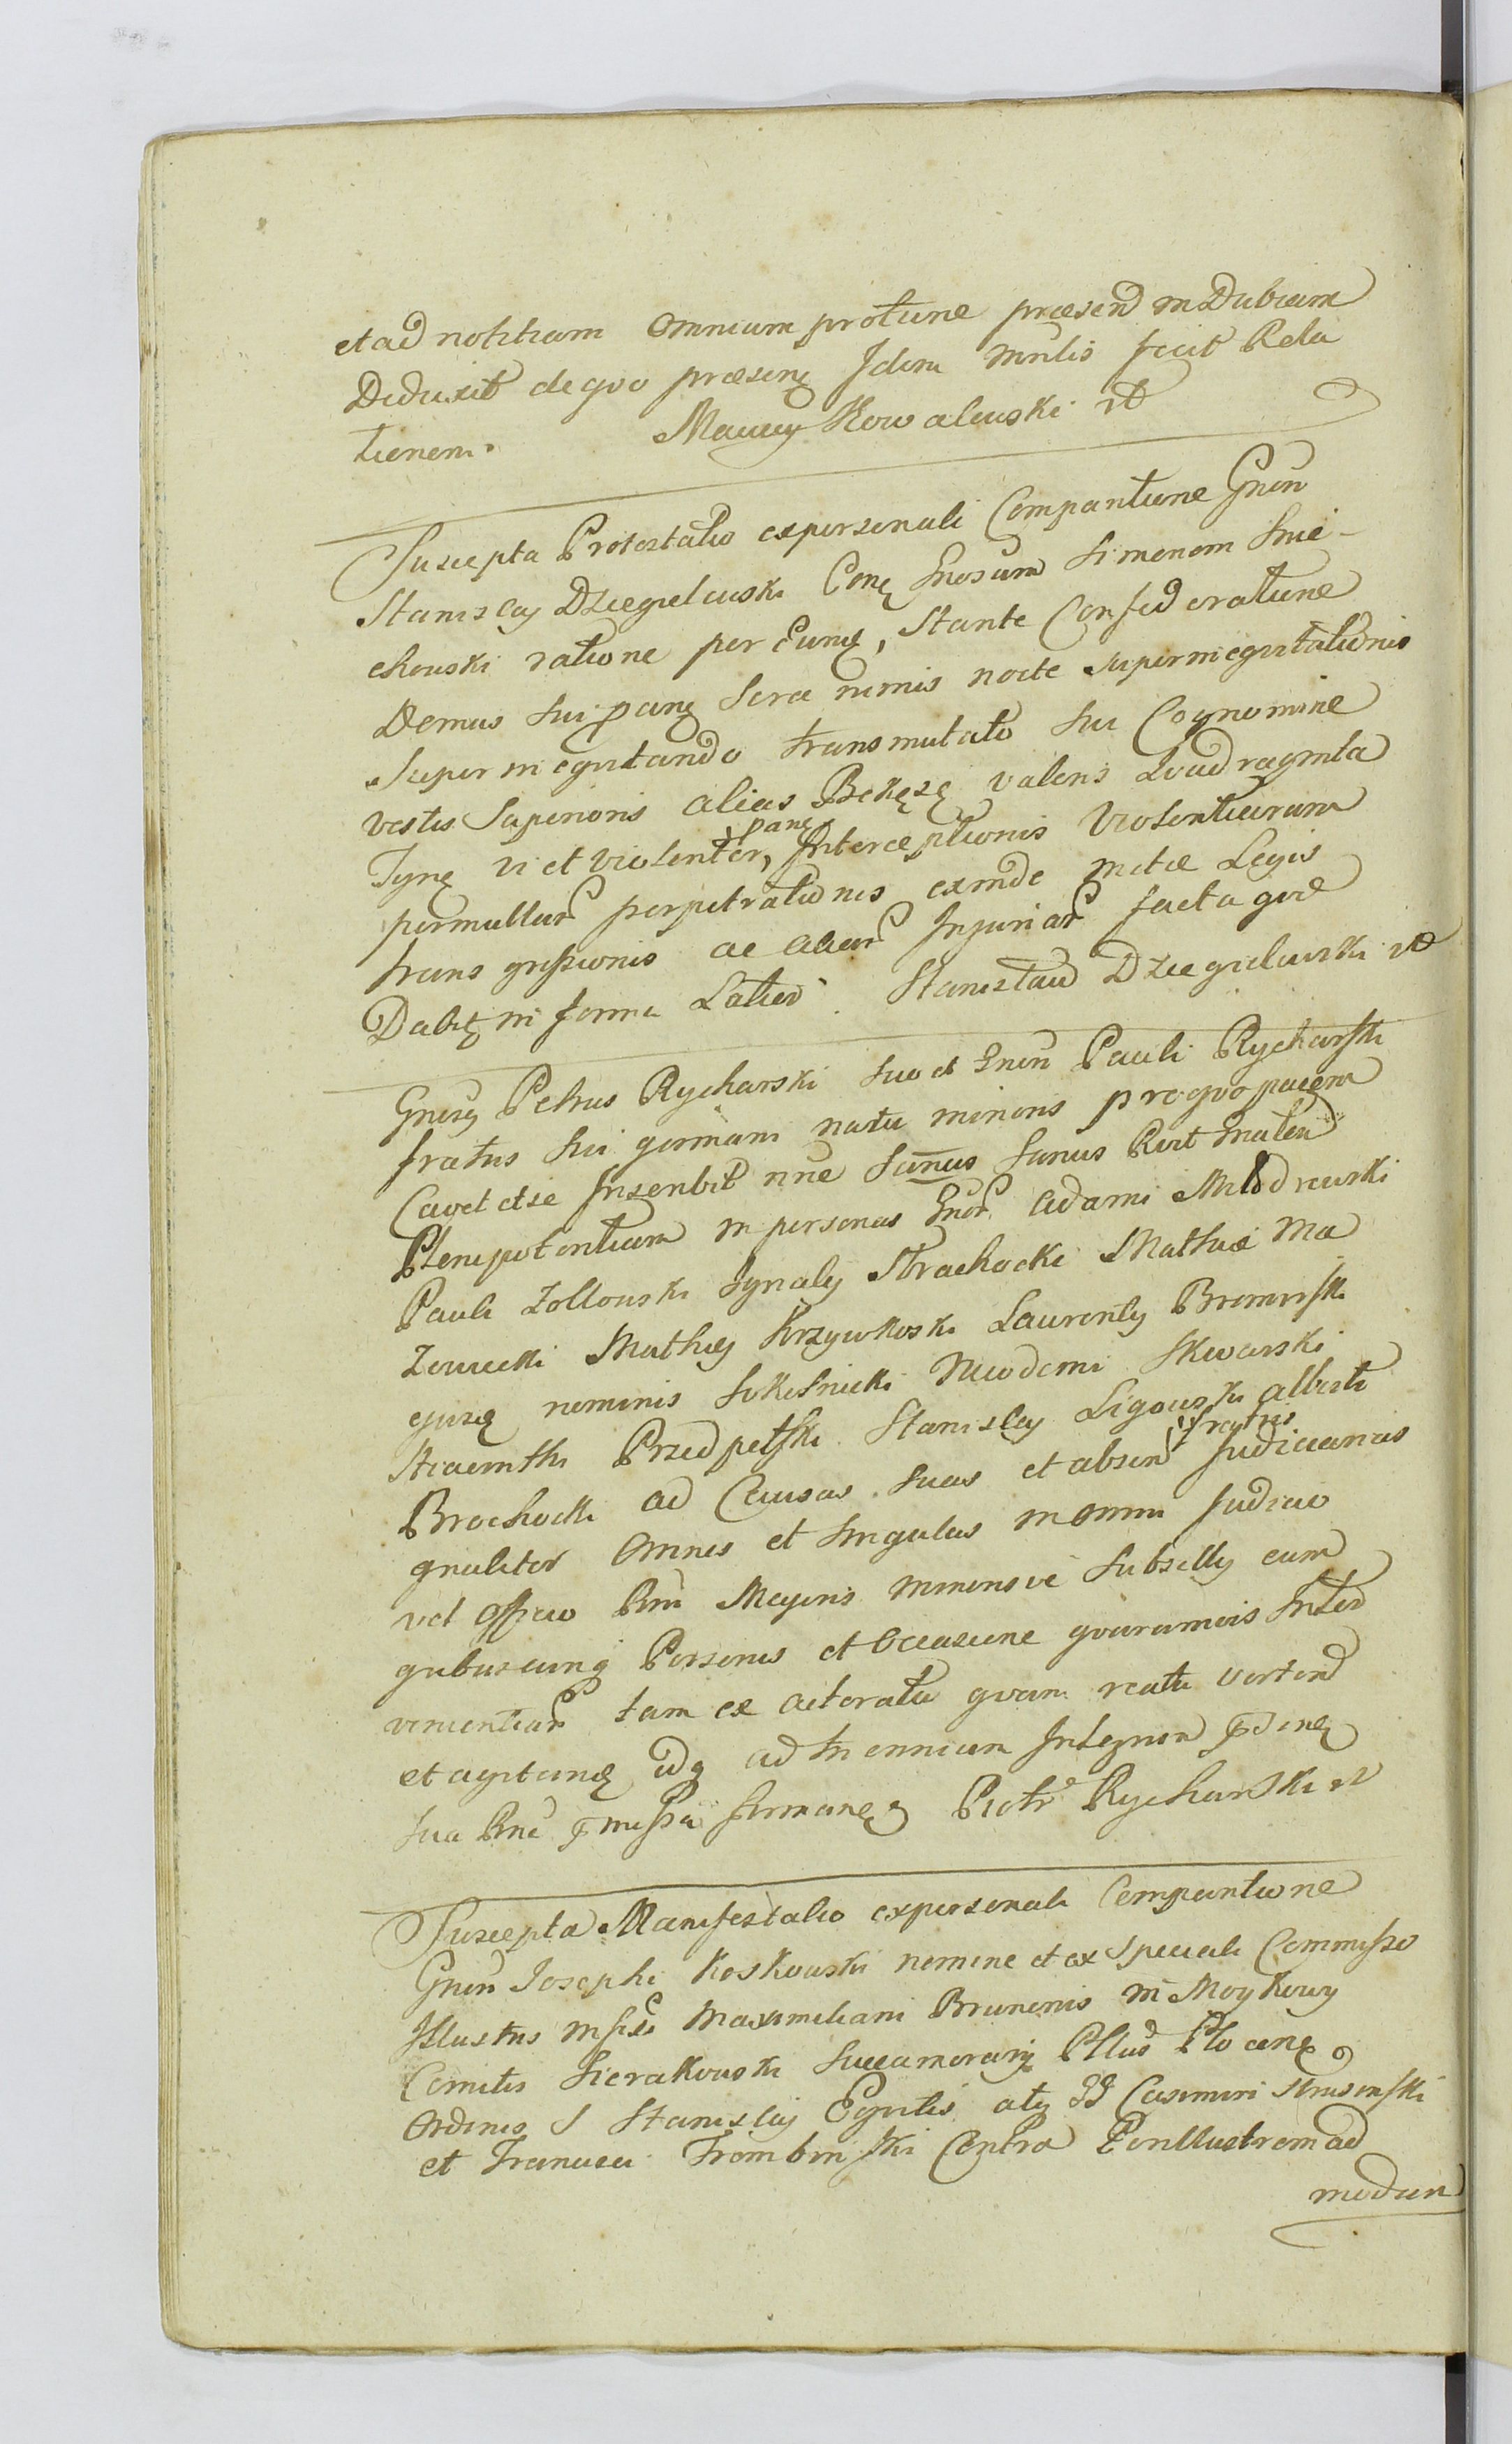 et ad notitiam omnium protunc praesend in Dubium
Deduxit de quo praesens Idem Mnlis fecit Rela
tionem. Maciey Kowalewski
Suscepta Protestatio ex personali Comparitione Gnen
Stanislai Dziegielewski Conq Gnosum Simonem Smie-
chouski ratione per Eunq, Stante Confederatione
Domus sui pang sera nimis nocte superinequitationis
superinequitando transmutato sui Cognomine
vestis superioris alias Bekesz valens Quadraginta
Tynq vi et violenter, pang Interceptionis Violentiarum
permultar perpetrationis exinde metae Legis
transgressionis ac aliar Injuriar facta que
Dabitq in forma Latiori. Stanisław Dziegielewski
Gnosq Petrus Rycharski suo et Gnen Pauli Rycharski
fratris sui germani natu minoris pro quo pacem
Cavet et se Inscribit nne sanus sanus Recit Gnalem
Plenipotentiam in personas Gner Adami Młodzewski
Pauli Zołtowski Ignatii Strachocki Mathiae Ma
zowiecki Mathiae Krzywkoski Laurentii Bromirski
ejusq nominis Sokolnicki Nicodemi Skwarski
Hiacinthi Przedpełski Stanislai Ligowski Alberti
Brochocki ad Causas suas et absen fratris Judiciarias
gnaliter omnes et singulas in omni Judicio
vel Officio Rni Majoris Minorisve Subsellii cum
quibuscunq Personis et Occasione quarumvis Inter
venientiar tam ex actoratu quam reatu vertend
et agitanq idq ad triennium Integrum
sua Rne pmissa firmanq Piotr Rycharski
Suscepta Manifestatio ex personali Comparitione
Gnen Josephi Koskowski nomine et ex speciali Commisso
Illustris Mfici Maximiliani Brunonis in Moykowy
Comitis Sierakowski Succamerarii Pllus Plocens
Ordinis S Stanislai Equitis atq GG Casimiri
et Francisci Trombinski Contra Perillustrem ad
modum